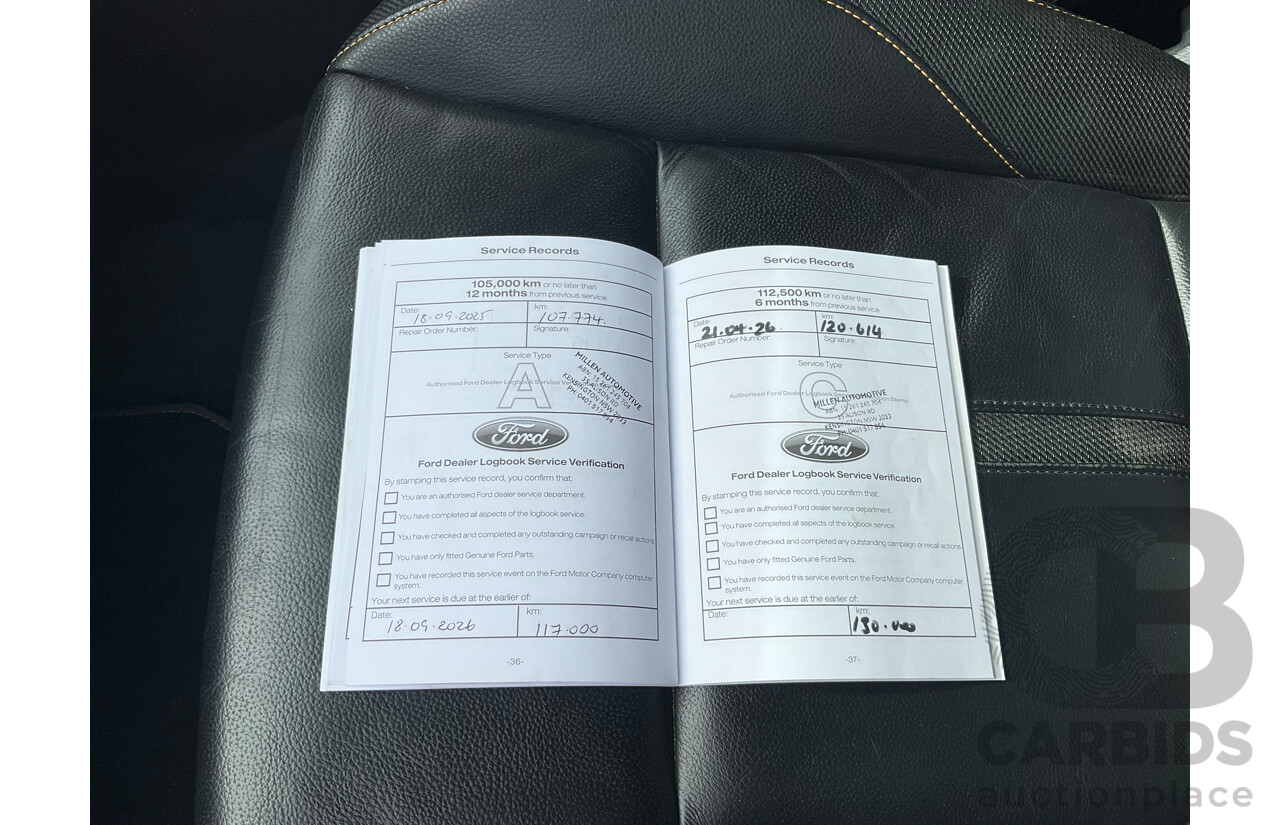 Service Records
105,000 km or no later than
12 months from previous service
Date: 18.09.2025 km: 107.774.
Repair Order Number: Signature:
Service Type
A
Authorised Ford Dealer Logbook Service
MILLEN AUTOMOTIVE
ABN: 15 261 245 704
35 ALISON RD
KENSINGTON NSW 2033
PH: 0401 517 654
Ford
Ford Dealer Logbook Service Verification
By stamping this service record, you confirm that:
You are an authorised Ford dealer service department.
You have completed all aspects of the logbook service.
You have checked and completed any outstanding campaign or recall actions.
You have only fitted Genuine Ford Parts.
You have recorded this service event on the Ford Motor Company computer
system.
Your next service is due at the earlier of:
Date: 18.09.2026 km: 117.000
-36-
Service Records
112,500 km or no later than
6 months from previous service
Date: 21.04.26 km: 120.614
Repair Order Number: Signature:
Service Type:
C
Authorised Ford Dealer Logbook Stamp
MILLEN AUTOMOTIVE
ABN: 15 261 245 704
35 ALISON RD
KENSINGTON NSW 2033
PH: 0401 517 654
Ford
Ford Dealer Logbook Service Verification
By stamping this service record, you confirm that:
You are an authorised Ford dealer service department.
You have completed all aspects of the logbook service.
You have checked and completed any outstanding campaign or recall actions.
You have only fitted Genuine Ford Parts.
You have recorded this service event on the Ford Motor Company computer
system.
Your next service is due at the earlier of:
Date: km: 130.000
-37-
CB
CARBIDS
auctionplace